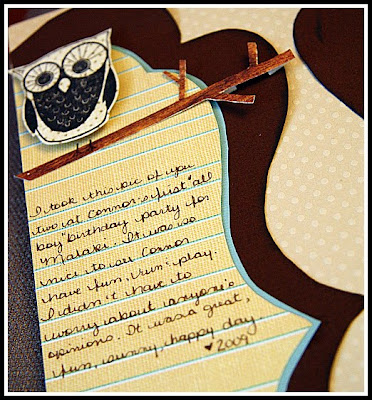 I took this pic of you
two at Connor's first "all
boy" birthday party for
Malaki. It was so
nice to see Connor
have fun, run & play.
I didn't have to
worry about anyone's
opinions. It was a great,
fun, sunny, happy day.
♥ 2009